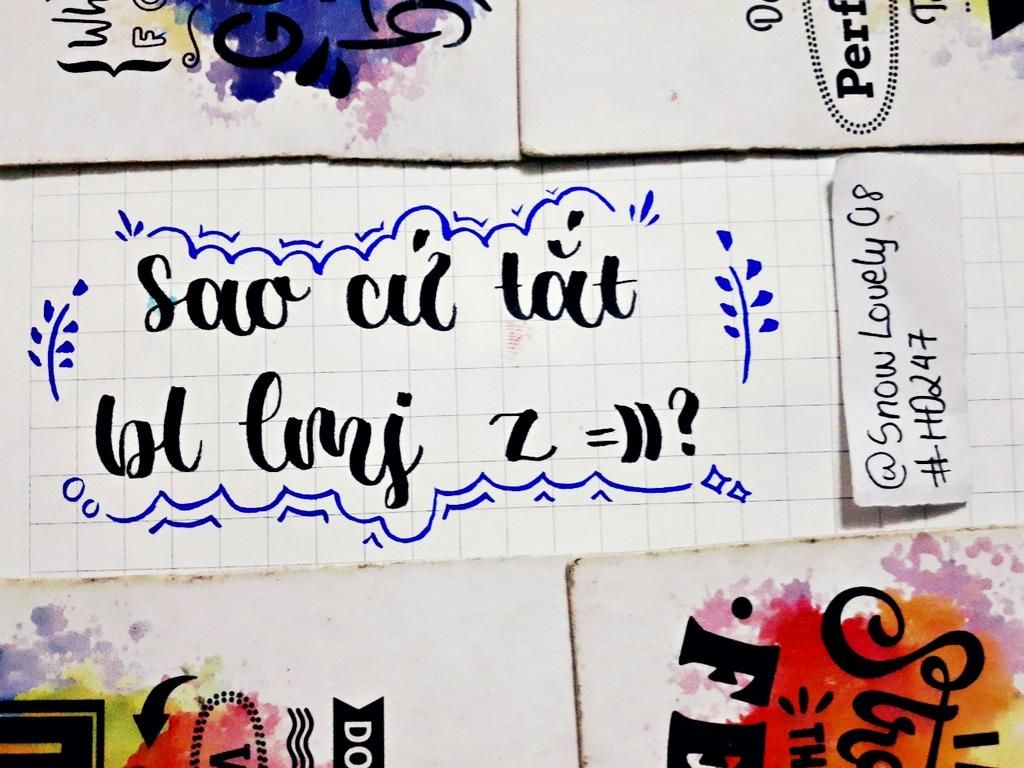 Sao cứ tắt
bl lmj z =))?
@SnowLovely08
#HD247
Perf
DO
TH